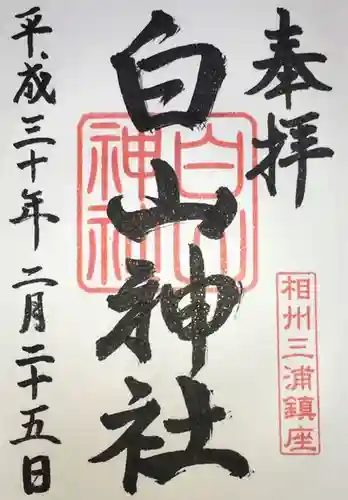 奉拝
相州三浦鎮座
白山神社
白山神社
平成三十年二月二十五日